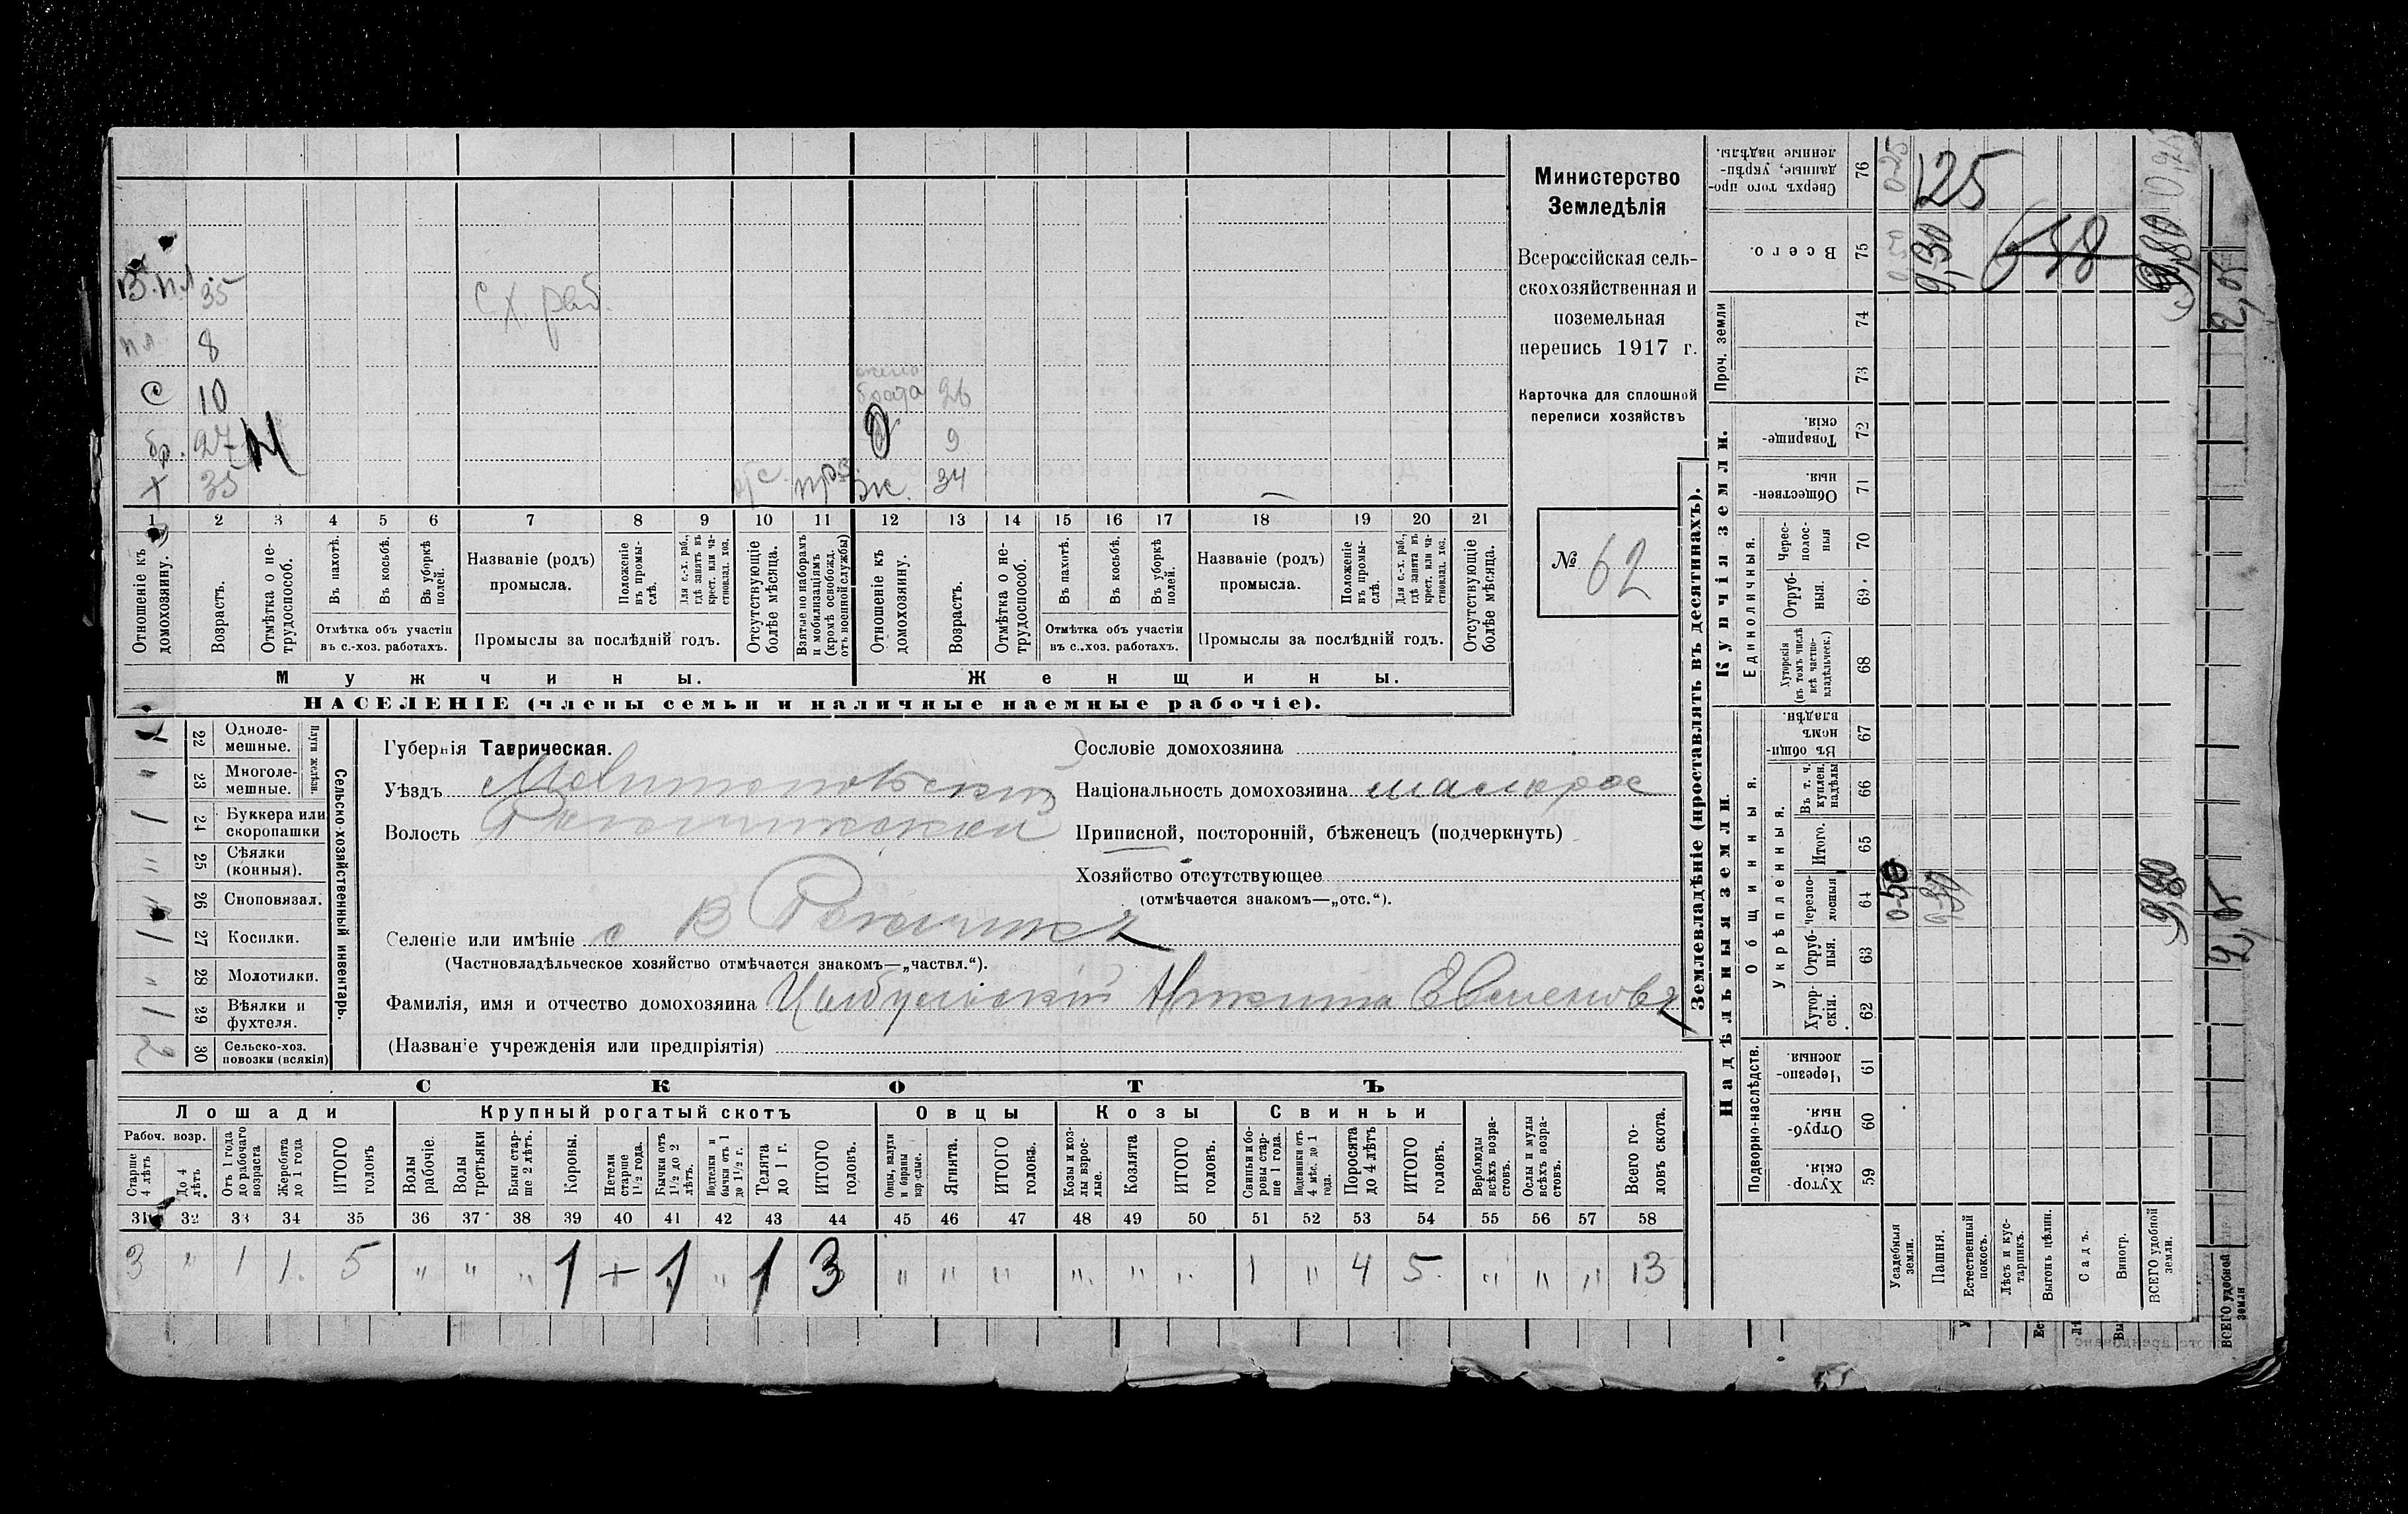 Министерство
Земледѣлія
Всероссійская сель-
скохозяйственная и
поземельная
перепись 1917 г.
Карточка для сплошной
переписи хозяйствъ
№ 62
В.пл 35 С.х. раб.
пл. 8
С 10 жена брата 26
бр. 27 9
х 35 отс. ж. 34 —
1 2 3 4 5 6 7 8 9 10 11 12 13 14 15 16 17 18 19 20 21
Отношеніе къ домохозяину.
Возрастъ.
Отмѣтка о не-трудоспособ.
Въ пахотѣ.
Въ косьбѣ.
Въ уборкѣ полей.
Отмѣтка объ участіи
въ с.-хоз. работахъ.
Названіе (родъ)
промысла.
Положеніе въ промы-слѣ.
Для с.-х. раб., гдѣ занятъ въ крест. или ча-стновлад. хоз.
Промыслы за послѣдній годъ.
Отсутствующіе болѣе мѣсяца.
Взятые по наборамъ и мобилизаціямъ (кромѣ освобожд. отъ военной службы)
Отношеніе къ домохозяину.
Возрастъ.
Отмѣтка о не-трудоспособ.
Въ пахотѣ.
Въ косьбѣ.
Въ уборкѣ полей.
Отмѣтка объ участіи
въ с.-хоз. работахъ.
Названіе (родъ)
промысла.
Положеніе въ промы-слѣ.
Для с.-х. раб., гдѣ занята въ крест. или ча-стновлад. хоз.
Промыслы за послѣдній годъ.
Отсутствующіе болѣе мѣсяца.
Мужчины. Женщины.
НАСЕЛЕНІЕ (члены семьи и наличные наемные рабочіе).
Сельско-хозяйственный инвентарь.
Плуги желѣзн.
1 22 Одноле-мешные.
" 23 Многоле-мешные.
1 24 Буккера или скоропашки
" 25 Сѣялки (конныя).
" 26 Сноповязал.
1 27 Косилки.
" 28 Молотилки.
1 29 Вѣялки и фухтеля.
2 30 Сельско-хоз. повозки (всякія)
Губернія Таврическая.
Уѣздъ Мелитопольскій
Волость Рогачикская
Селеніе или имѣніе с В Рогачикъ
(Частновладѣльческое хозяйство отмѣчается знакомъ—„частвл.“).
Фамилія, имя и отчество домохозяина Цыбульскій Никита Семеновъ
(Названіе учрежденія или предпріятія)
Сословіе домохозяина
Національность домохозяина малорос
Приписной, посторонній, бѣженецъ (подчеркнуть)
Хозяйство отсутствующее
(отмѣчается знакомъ—„отс.“).
СКОТЪ
Лошади Крупный рогатый скотъ Овцы Козы Свиньи
Рабоч. возр.
Старше 4 лѣтъ
До 4 лѣтъ
Отъ 1 года до рабочаго возраста
Жеребята до 1 года
ИТОГО головъ
Волы рабочіе.
Волы третьяки
Быки стар-ше 2 лѣтъ.
Коровы.
Нетели старше 1½ года.
Бычки отъ 1½ до 2 лѣтъ.
Подтелки и бычки отъ 1 до 1½ г.
Телята до 1 г.
ИТОГО головъ.
Овцы, валухи и бараны взрослые.
Ягнята.
ИТОГО головъ.
Козы и коз-лы взрос-лые.
Козлята
ИТОГО головъ.
Свиньи и бо-ровы стар-ше 1 года.
Подсвинки отъ 4 мѣс. до 1 года.
Поросята до 4 лѣтъ
ИТОГО головъ.
Верблюды всѣхъ возра-стовъ.
Ослы и мулы всѣхъ возра-стовъ.
Всего го-ловъ скота.
31 32 33 34 35 36 37 38 39 40 41 42 43 44 45 46 47 48 49 50 51 52 53 54 55 56 57 58
3 " 1 1. 5 " " " 1 + 1 " 1 3 " " " " " " 1 " 4 5. " " " 13
Землевладѣніе (проставлять въ десятинахъ).
Надѣльныя земли. Купчія земли. Проч. земли
Подворно-наслѣдств. Общинныя. Единоличныя.
Укрѣпленныя.
Хутор-скія. 59
Отруб-ныя. 60
Черезпо-лосныя. 61
Хутор-скія. 62
Отруб-ныя. 63
Черезпо-лосныя 64
Итого. 65
Въ т. ч. куплен. надѣлы 66
Въ общи-номъ владѣн. 67
Хуторскія (въ томъ числѣ всѣ частно-владѣльческ.) 68
Отруб-ныя. 69.
Черес-полос-ныя 70
Обществен-ныя 71
Товарище-скія. 72
73
74
Всего. 75
Сверхъ того про-данные, укрѣп-ленные надѣлы. 76
Усадебныя земли. 0-25
Пашня. 9-30 9,30 125
Естественный покосъ.
Лѣсъ и кус-тарникъ.
Выгонъ цѣлин.
Садъ.
Виногр.
ВСЕГО удобной земли. 9,80 9,80
ВСЕГО удобной земли